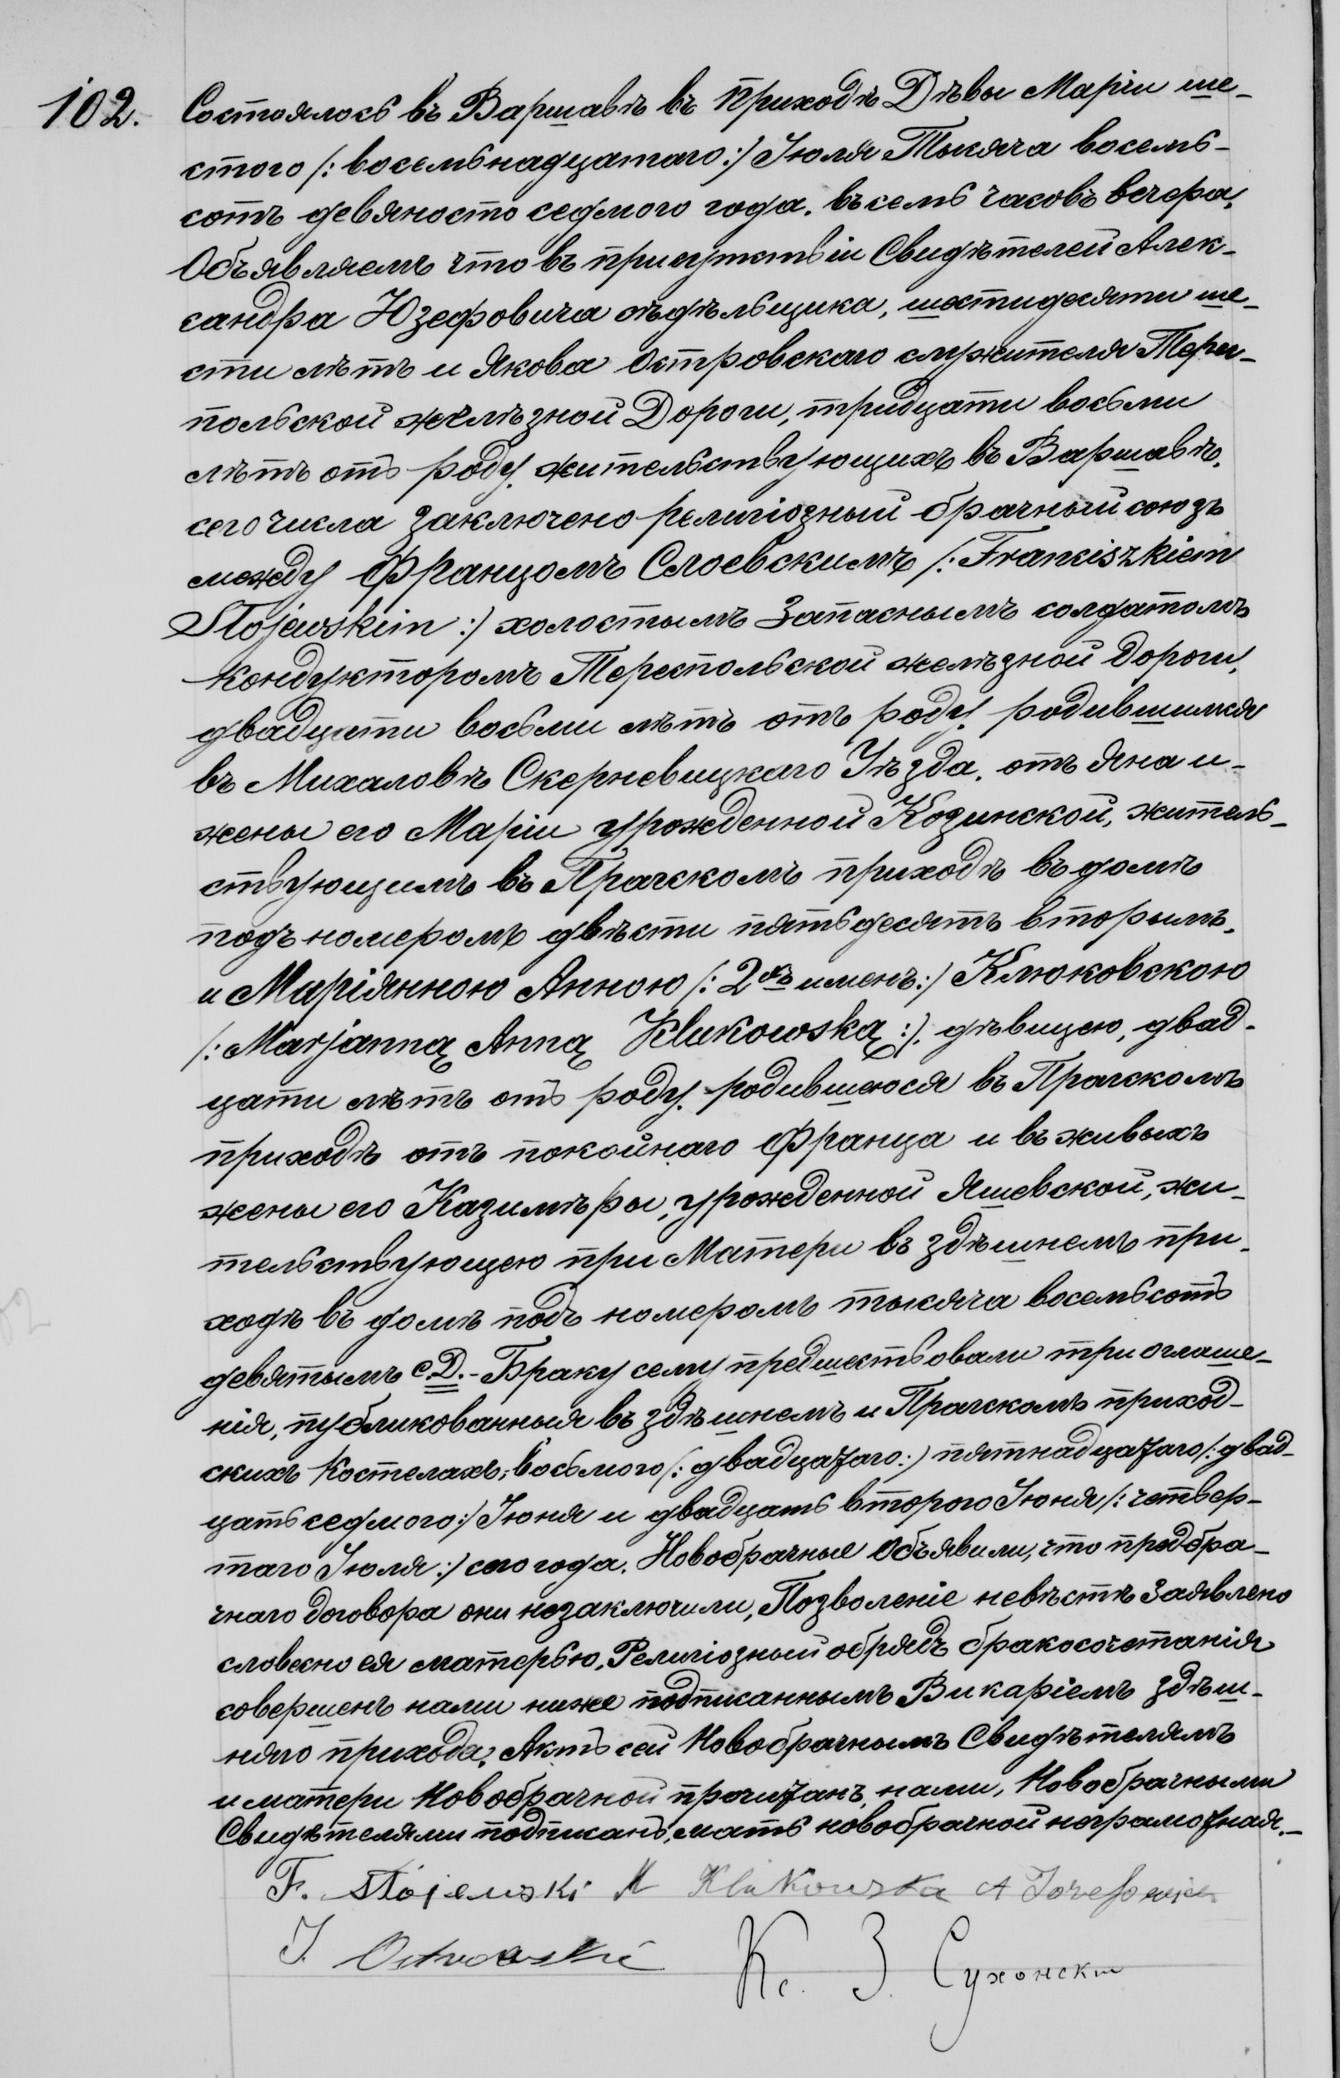 102. Состоялось въ Варшавѣ въ приходѣ Дѣвы Маріи ше-
стого /: восемьнадцатаго :/ Іюля Тысяча восемь-
сотъ девяносто седмого года. въ семь часовъ вечера.
Объявляемъ что въ присутствіи Свидѣтелей Алек-
сандра Юзефовича издѣльщика, шестидесяти ше-
сти лѣтъ и Якова Островскаго служителя Терес-
польской желѣзной Дороги, тридцати восьми
лѣтъ отъ роду, жительствующихъ въ Варшавѣ,
сего числа заключено религіозный брачный союзъ
между Францомъ Слоевскимъ /: Franciszkiem
Słojewskim :/ холостымъ Запаснымъ солдатомъ
кондукторомъ Тереспольской желѣзной Дороги,
двадцати восьми лѣтъ отъ роду, родившимся
въ Михаловѣ Скерневицкаго Уѣзда, отъ Яна и
жены его Маріи урожденной Козинской, житель-
ствующимъ въ Прагскомъ приходѣ въ домѣ
подъ номеромъ двѣсти пятьдесятъ вторымъ,
и Маріянною Анною /: 2хъ именъ :/ Клюковскою
/: Marjanną Anną Klukowską :/, дѣвицею, двад-
цати лѣтъ отъ роду, родившеюся въ Прагскомъ
приходѣ отъ покойнаго Франца и въ живыхъ
жены его Казимѣры, урожденной Яшевской, жи-
тельствующею при Матери въ здѣшнемъ при-
ходѣ въ домѣ подъ номеромъ тысяча восемьсотъ
девятымъ с.D. - Браку сему предшествовали три оглаше-
нія, публикованныя въ здѣшнемъ и Прагскомъ приход-
скихъ костелахъ, восьмого /: двадцатаго :/ пятнадцатаго /: двад-
цать седмого :/ Іюня и двадцать второго Іюня /: четвер-
таго Іюля :/ сего года. Новобрачные объявили, что предбра-
чнаго договора они незаключили, Позволеніе невѣстѣ Заявлено
словесно ея матерью, Религіозный обрядъ бракосочетанія
совершенъ нами ниже подписаннымъ Викаріемъ здѣш-
няго прихода. Актъ сей Новобрачнымъ Свидѣтелямъ
и матери Новобрачной прочитанъ, нами, Новобрачными
Свидѣтелями подписанъ, мать новобрачной неграмотная.-
F. Słojewski M Klukowska A Jozefowicz
J. Ostrowski Кс. З. Сухонски